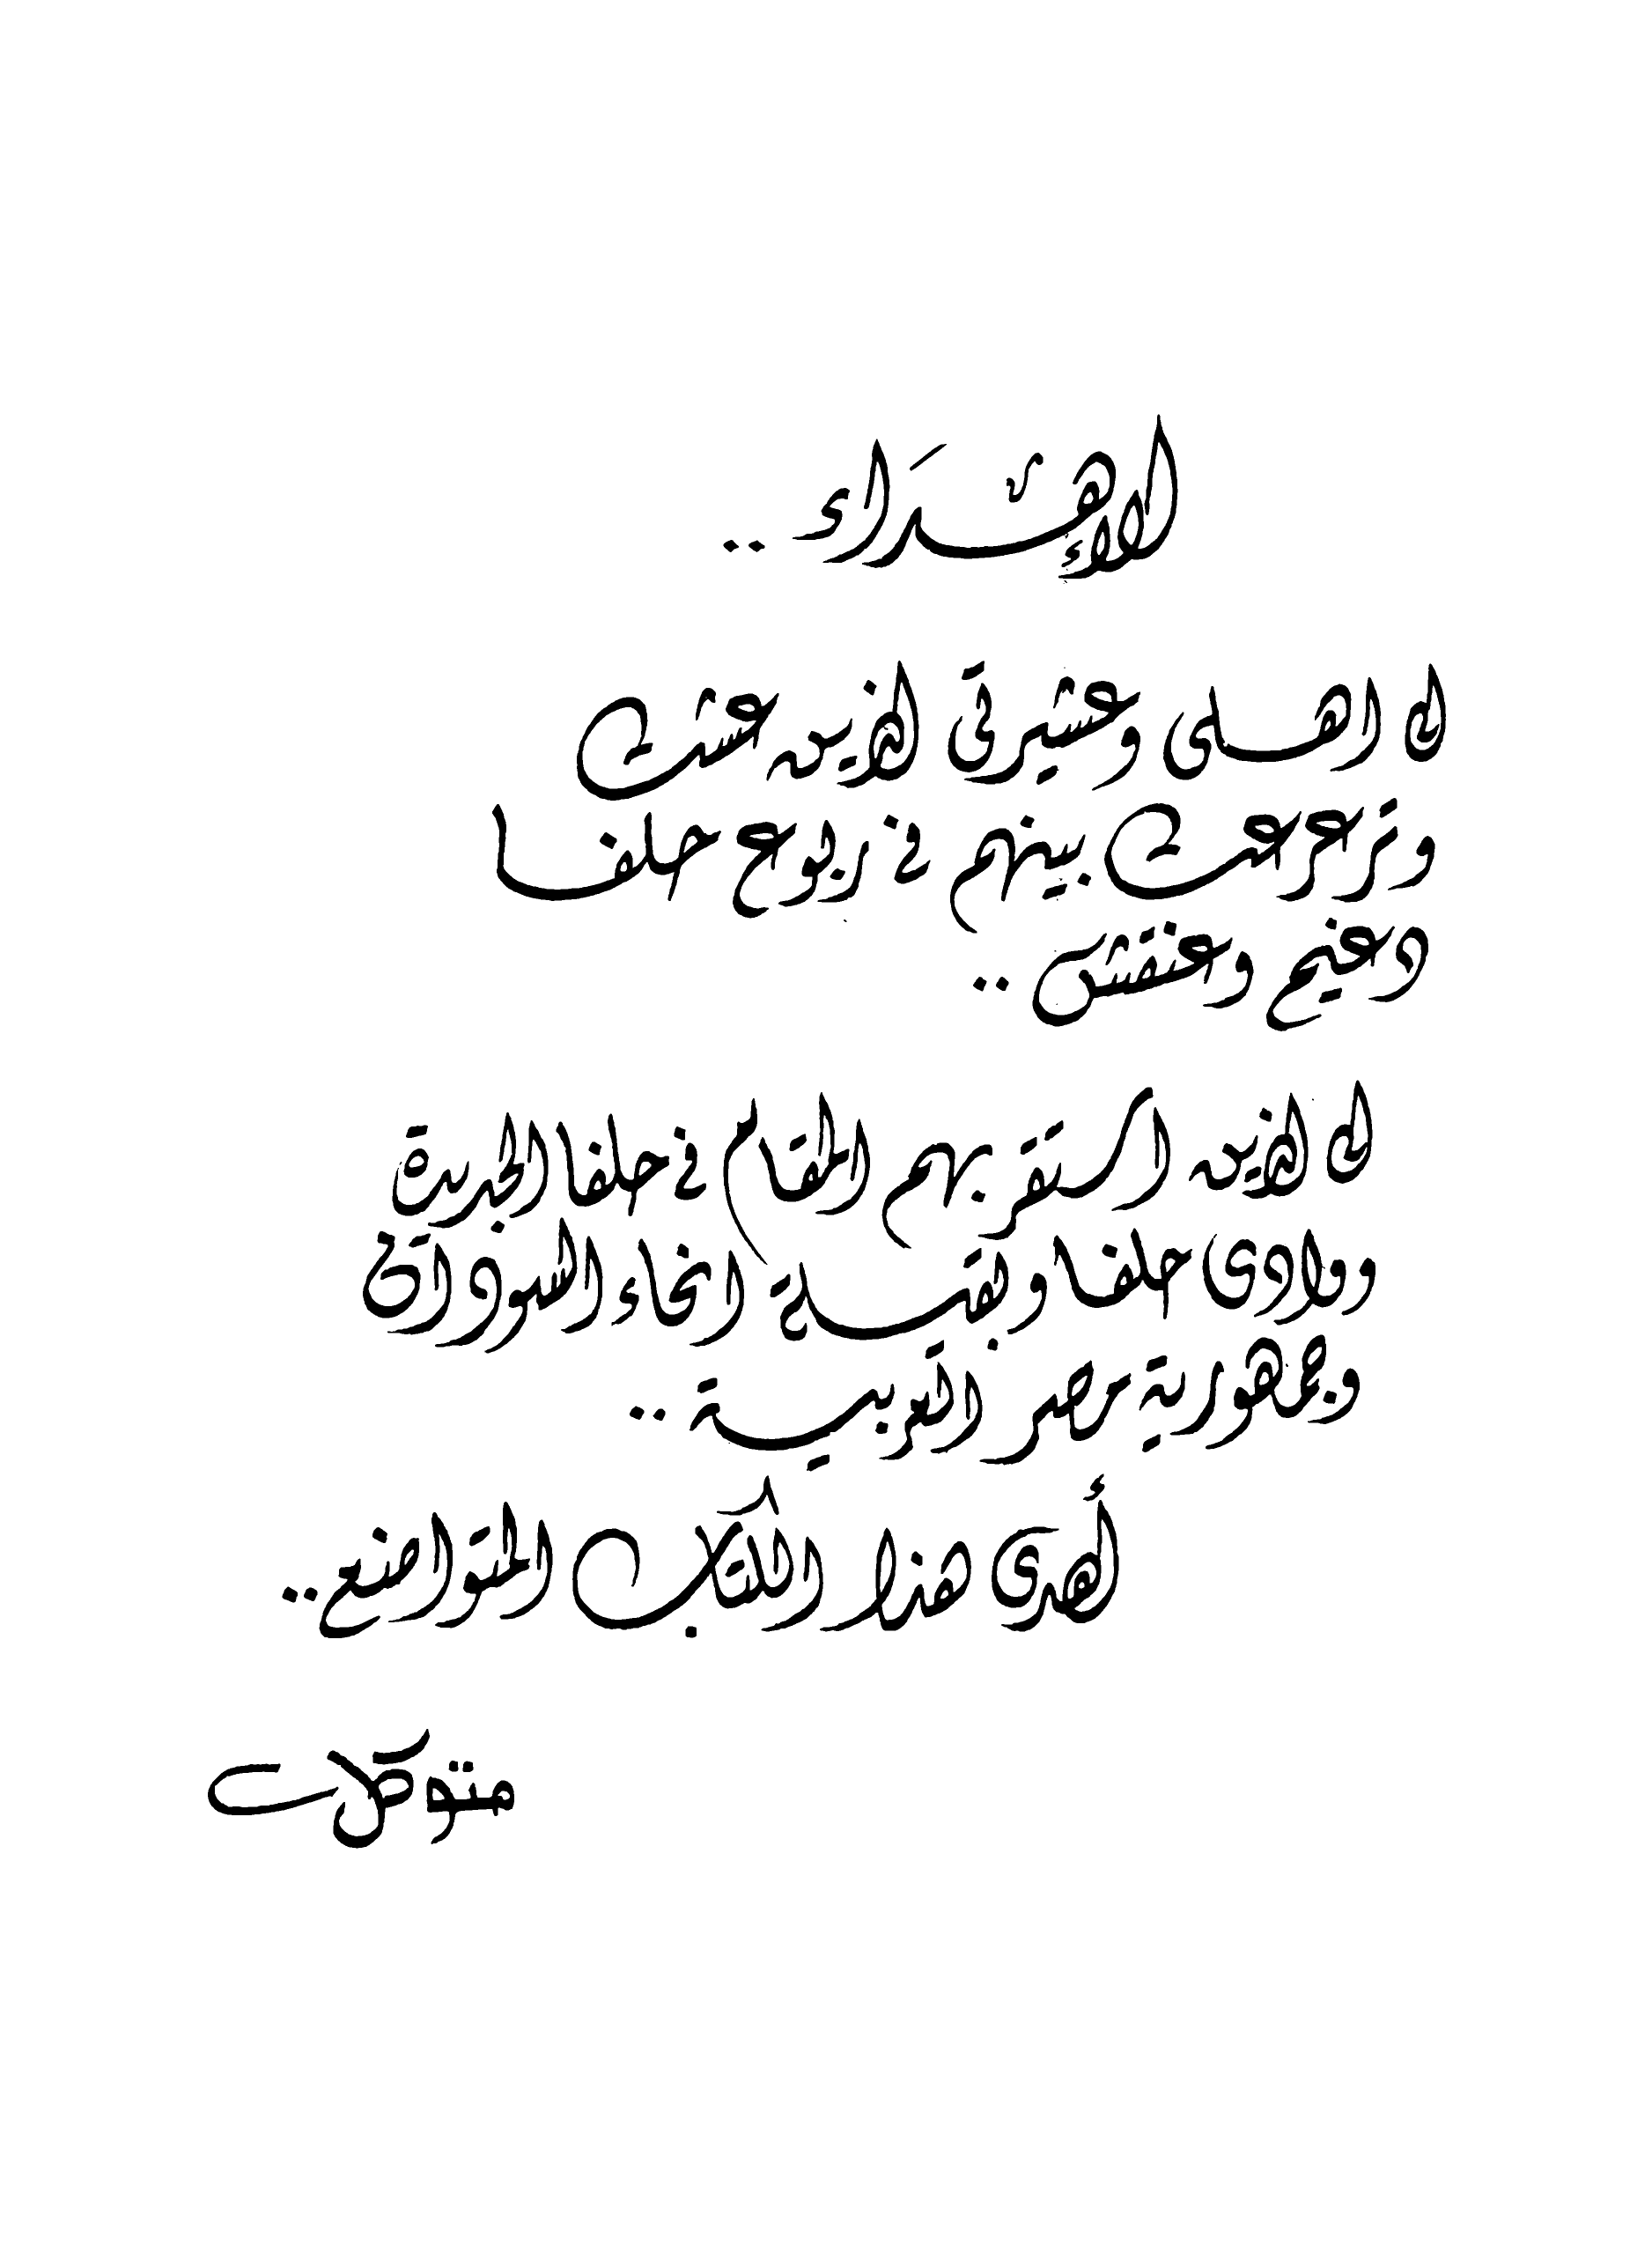 الإهداء ..
الى اهلى وعشيرتى الذين عشت
وترعرعت بينهم فى ربوع حلفا
دغيم وعنقش ..
الى الذين استقر بهم المقام فى حلفا الجديدة
ووادى حلفا وبقية انحاء السودان
وجمهورية مصر العربية ..
أهدى هذا الكتاب المتواضع ..
متوكل